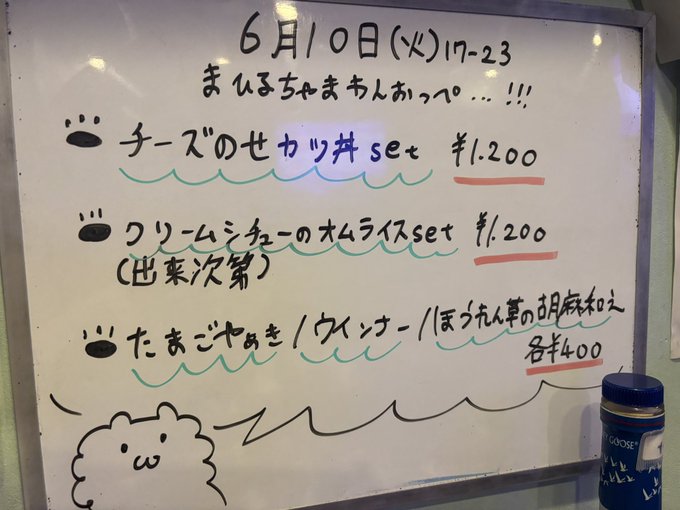 6月10日(火)17-23
まひるちゃまわんおっぺ...!!!
チーズのせカツ丼set ¥1.200
クリームシチューのオムライスset ¥1.200
(出来次第)
たまごやぁき/ウインナー/ほうれん草の胡麻和え
各¥400
GOOSE